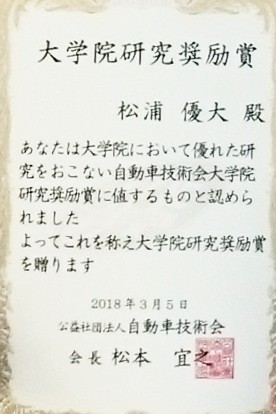 大学院研究奨励賞
松浦 優大 殿
あなたは大学院において優れた研
究をおこない自動車技術会大学院
研究奨励賞に値するものと認めら
れました
よってこれを称え大学院研究奨励賞
を贈ります
2018年3月5日
公益社団法人自動車技術会
会長 松本 宜之